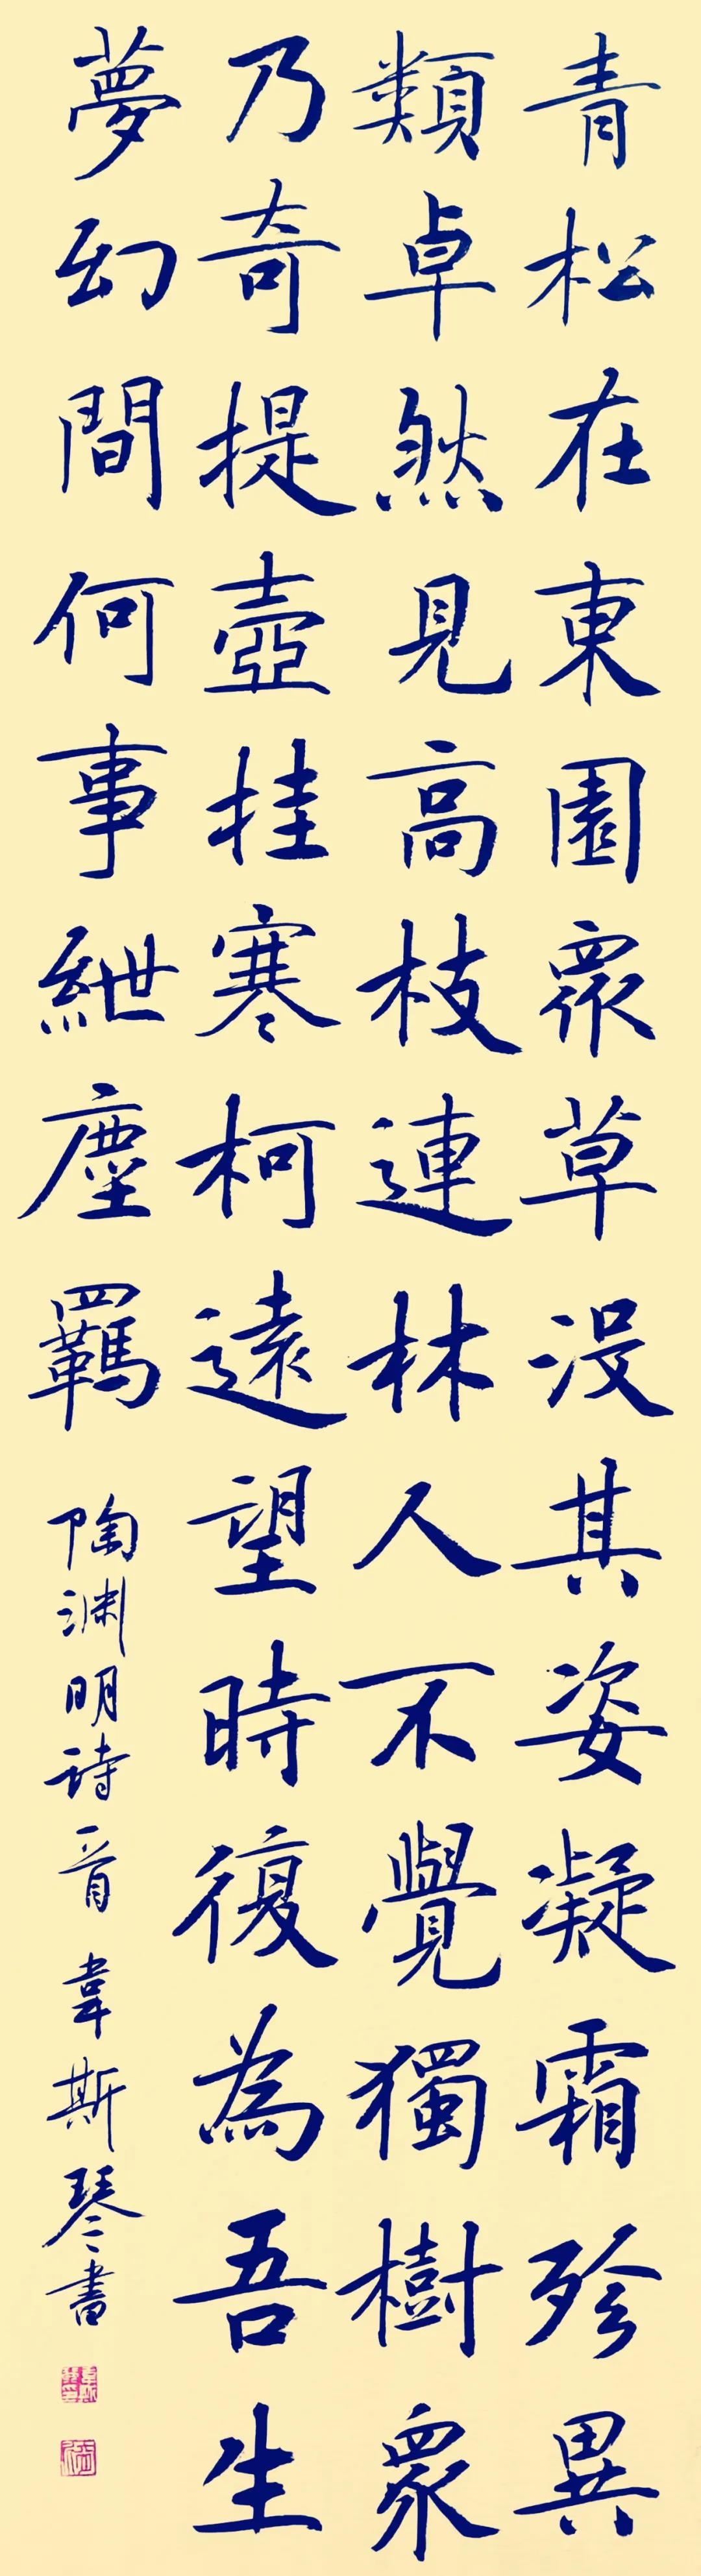 青松在東園眾草没其姿凝霜殄異
類卓然見高枝連林人不覺獨樹衆
乃奇提壺挂寒柯遠望時復為吾生
夢幻間何事紲塵羈
陶渊明詩一首 韋斯琴書